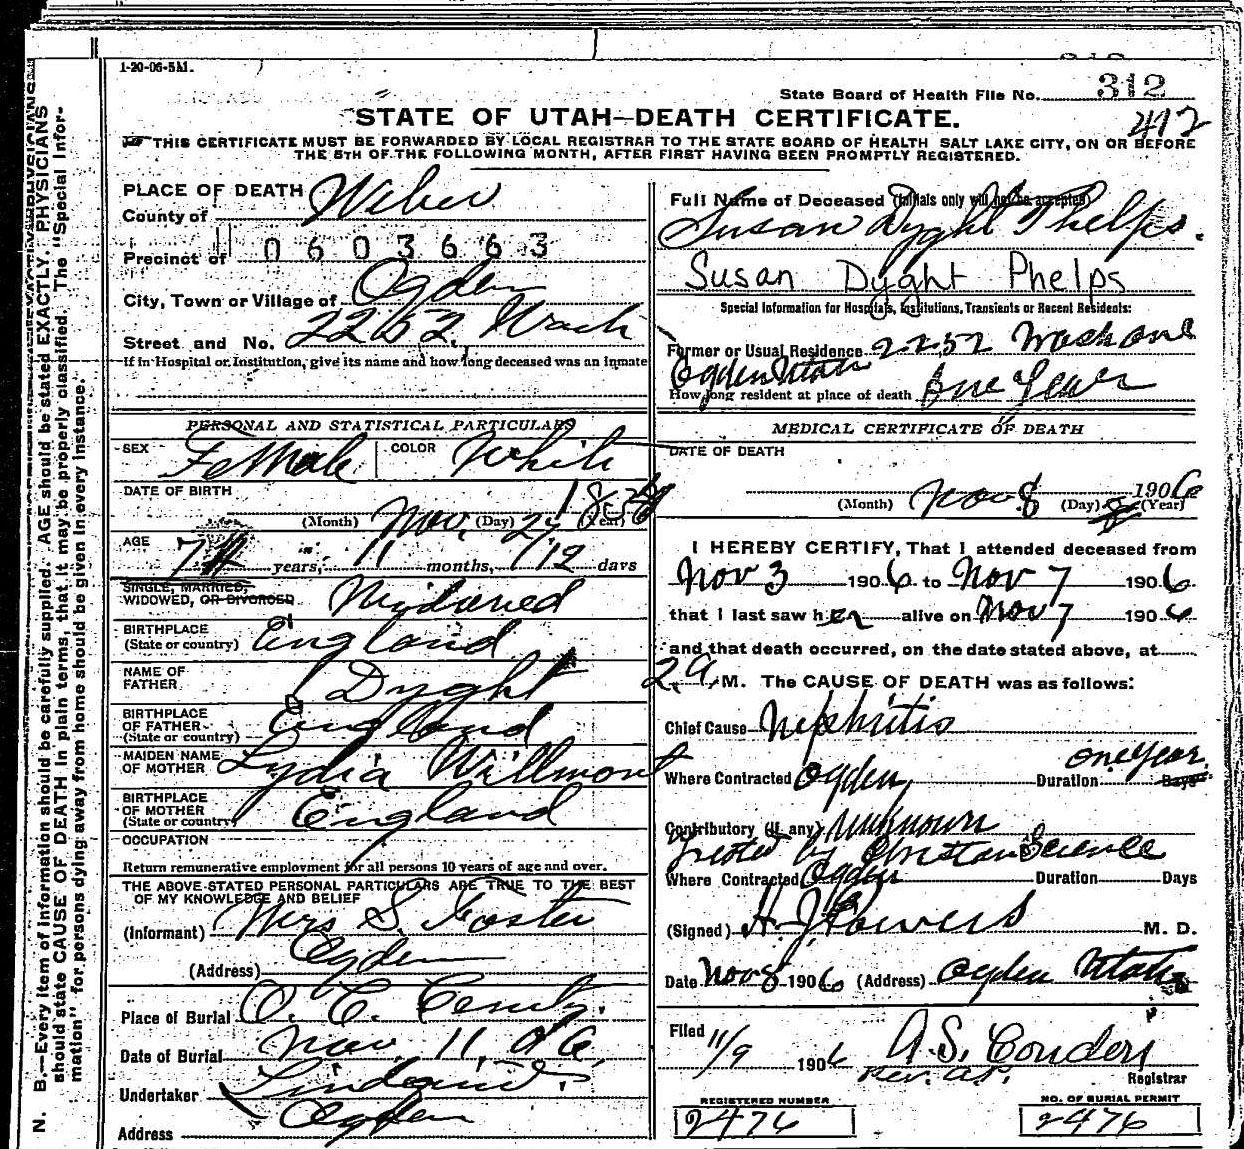 1-20-06-5M.
State Board of Health File No. 312
412
STATE OF UTAH—DEATH CERTIFICATE.
THIS CERTIFICATE MUST BE FORWARDED BY LOCAL REGISTRAR TO THE STATE BOARD OF HEALTH SALT LAKE CITY, ON OR BEFORE
THE 5TH OF THE FOLLOWING MONTH, AFTER FIRST HAVING BEEN PROMPTLY REGISTERED.
PLACE OF DEATH
County of Weber
Precinct of 0603663
City, Town or Village of Ogden
Street and No. 2252 Wash
If in Hospital or Institution, give its name and how long deceased was an inmate
PERSONAL AND STATISTICAL PARTICULARS
SEX Female COLOR White
DATE OF BIRTH
(Month) Nov. (Day) 27 (Year)
AGE
years, 11 months, 12 days
SINGLE, MARRIED,
WIDOWED, OR DIVORCED Widowed
BIRTHPLACE
(State or country) England
NAME OF
FATHER Dyght
BIRTHPLACE
OF FATHER
(State or country) England
MAIDEN NAME
OF MOTHER Lydia Willmont
BIRTHPLACE
OF MOTHER
(State or country) England
OCCUPATION
Return remunerative employment for all persons 10 years of age and over.
THE ABOVE STATED PERSONAL PARTICULARS ARE TRUE TO THE BEST
OF MY KNOWLEDGE AND BELIEF
(Informant) Mrs S. Foster
(Address) Ogden
Place of Burial O. C. Cemty.
Date of Burial Nov. 11, 06
Undertaker
Address Ogden
Full Name of Deceased (Initials only will not be accepted)
Susan Dyght Phelps.
Susan Dyght Phelps
Special Information for Hospitals, Institutions, Transients or Recent Residents:
Former or Usual Residence 2252 Wash ave
Ogden Utah
How long resident at place of death One Year
MEDICAL CERTIFICATE OF DEATH
DATE OF DEATH
(Month) Nov 8 (Day) 8 1906 (Year)
I HEREBY CERTIFY, That I attended deceased from
Nov 3 1906 to Nov 7 1906
that I last saw her alive on Nov 7 1906
and that death occurred, on the date stated above, at
2 a. M. The CAUSE OF DEATH was as follows:
Chief Cause Nephritis
Where Contracted Ogden Duration one Year Days
Contributory (if any) Unknown
Treated by Christian Science
Where Contracted Ogden Duration Days
(Signed) H. J. Powers M. D.
Date Nov 8 1906 (Address) Ogden Utah
Filed 11/9 1906 A.S. Condon
Registrar
REGISTERED NUMBER
2476
NO. OF BURIAL PERMIT
2476
N. B.—Every item of information should be carefully supplied. AGE should be stated EXACTLY. PHYSICIANS
should state CAUSE OF DEATH in plain terms, that it may be properly classified. The "Special Infor-
mation" for persons dying away from home should be given in every instance.